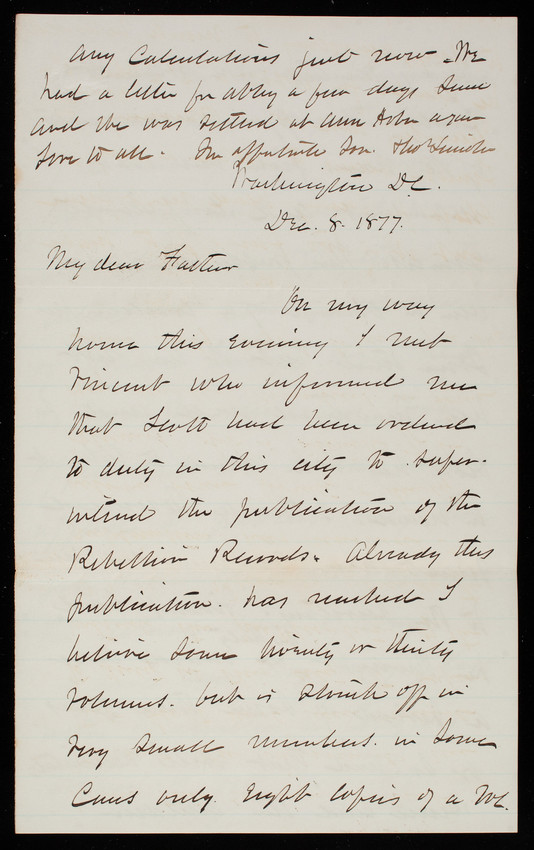 any Calculations just now - We
had a letter fr Abby a few days since
and she was settled at Ann again
Love to all. Yr affectionate Son. Thos Lincoln
Washington DC.
Dec. 8. 1877.
My dear Father
On my way
home this evening I met
Vincent who informed me
that Scott had been ordered
to duty in this city to super-
intend the publication of the
Rebellion Records. Already this
publication. has reached I
believe some twenty or thirty
volumes. but is struck off in
very small numbers. in some
cases only. Eight copies of a Vol.